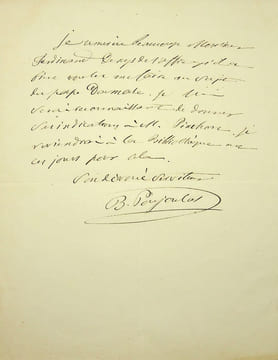 je remercie beaucoup Monsieur
Ferdinand Denys de l'offre qu'il a
bien voulu me faire au sujet
du pape. je lui
serai reconnaissant de donner
ses indications à M. je
reviendrai à la Bibliothèque un de
ces jours pour cela.
Son dévoué serviteur
B. Poujoulat